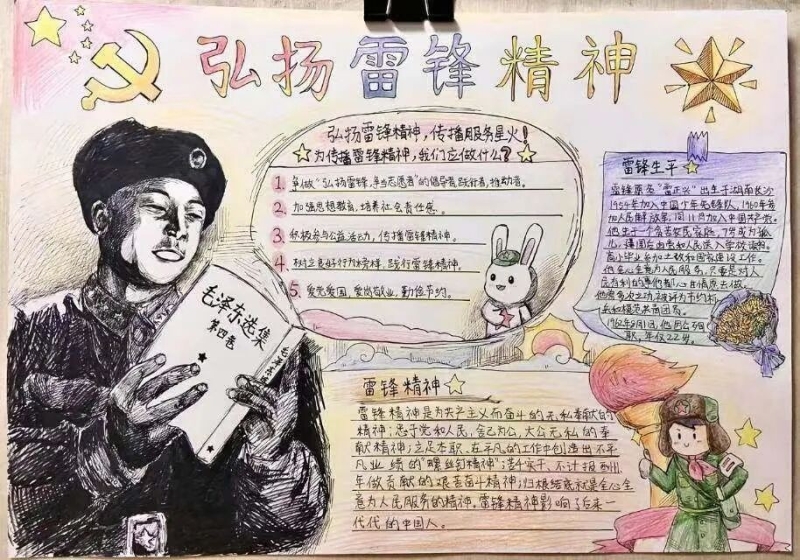 弘扬雷锋精神
弘扬雷锋精神，传播服务星火！
为传播雷锋精神，我们应做什么？
1. 争做“弘扬雷锋，争当志愿者”的倡导者，践行者，推动者。
2. 加强思想教育，培养社会责任感。
3. 积极参与公益活动，传播雷锋精神。
4. 树立良好行为榜样，践行雷锋精神。
5. 爱党爱国，爱岗敬业，勤俭节约。
雷锋生平
雷锋原名“雷正兴”出生于湖南长沙
1954年加入中国少年先锋队，1960年参
加人民解放军，同11月加入中国共产党。
他生于一个贫苦农民家庭，7岁成为孤
儿
高小毕业参加土改和国家建设工作。
他全心全意为人民服务，只要是对人
民有利的事他都心甘情愿去做，
他曾多次立功，被评为节约标
兵和模范共青团员。
1962年8月15日，他因公殉
职，年仅22岁。
毛泽东选集
第四卷
毛泽东选
雷锋精神
雷锋精神是为共产主义而奋斗的无私奉献的
精神；忠于党和人民，舍己为公，大公无私的奉
献精神；立足本职，在平凡的工作中创造出不平
凡业绩的“螺丝钉精神”；苦干实干，不计报酬，
争做贡献的艰苦奋斗精神；归根结底就是全心全
意为人民服务的精神。雷锋精神影响了后来一
代代的中国人。